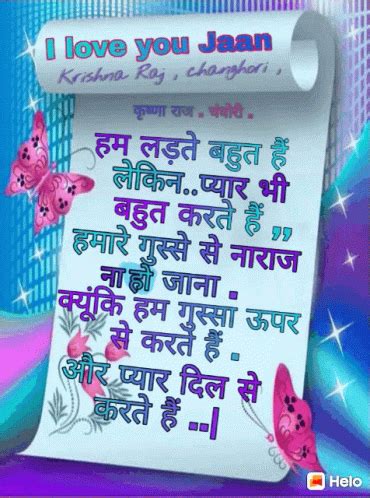 I love you Jaan
Krishna Raj , changhori ,
कृष्णा राज . चंघोरी .
हम लड़ते बहुत हैं
लेकिन..प्यार भी
बहुत करते हैं ,,
हमारे गुस्से से नाराज
ना हो जाना .
क्यूंकि हम गुस्सा ऊपर
से करते हैं .
और प्यार दिल से
करते हैं --|
Helo